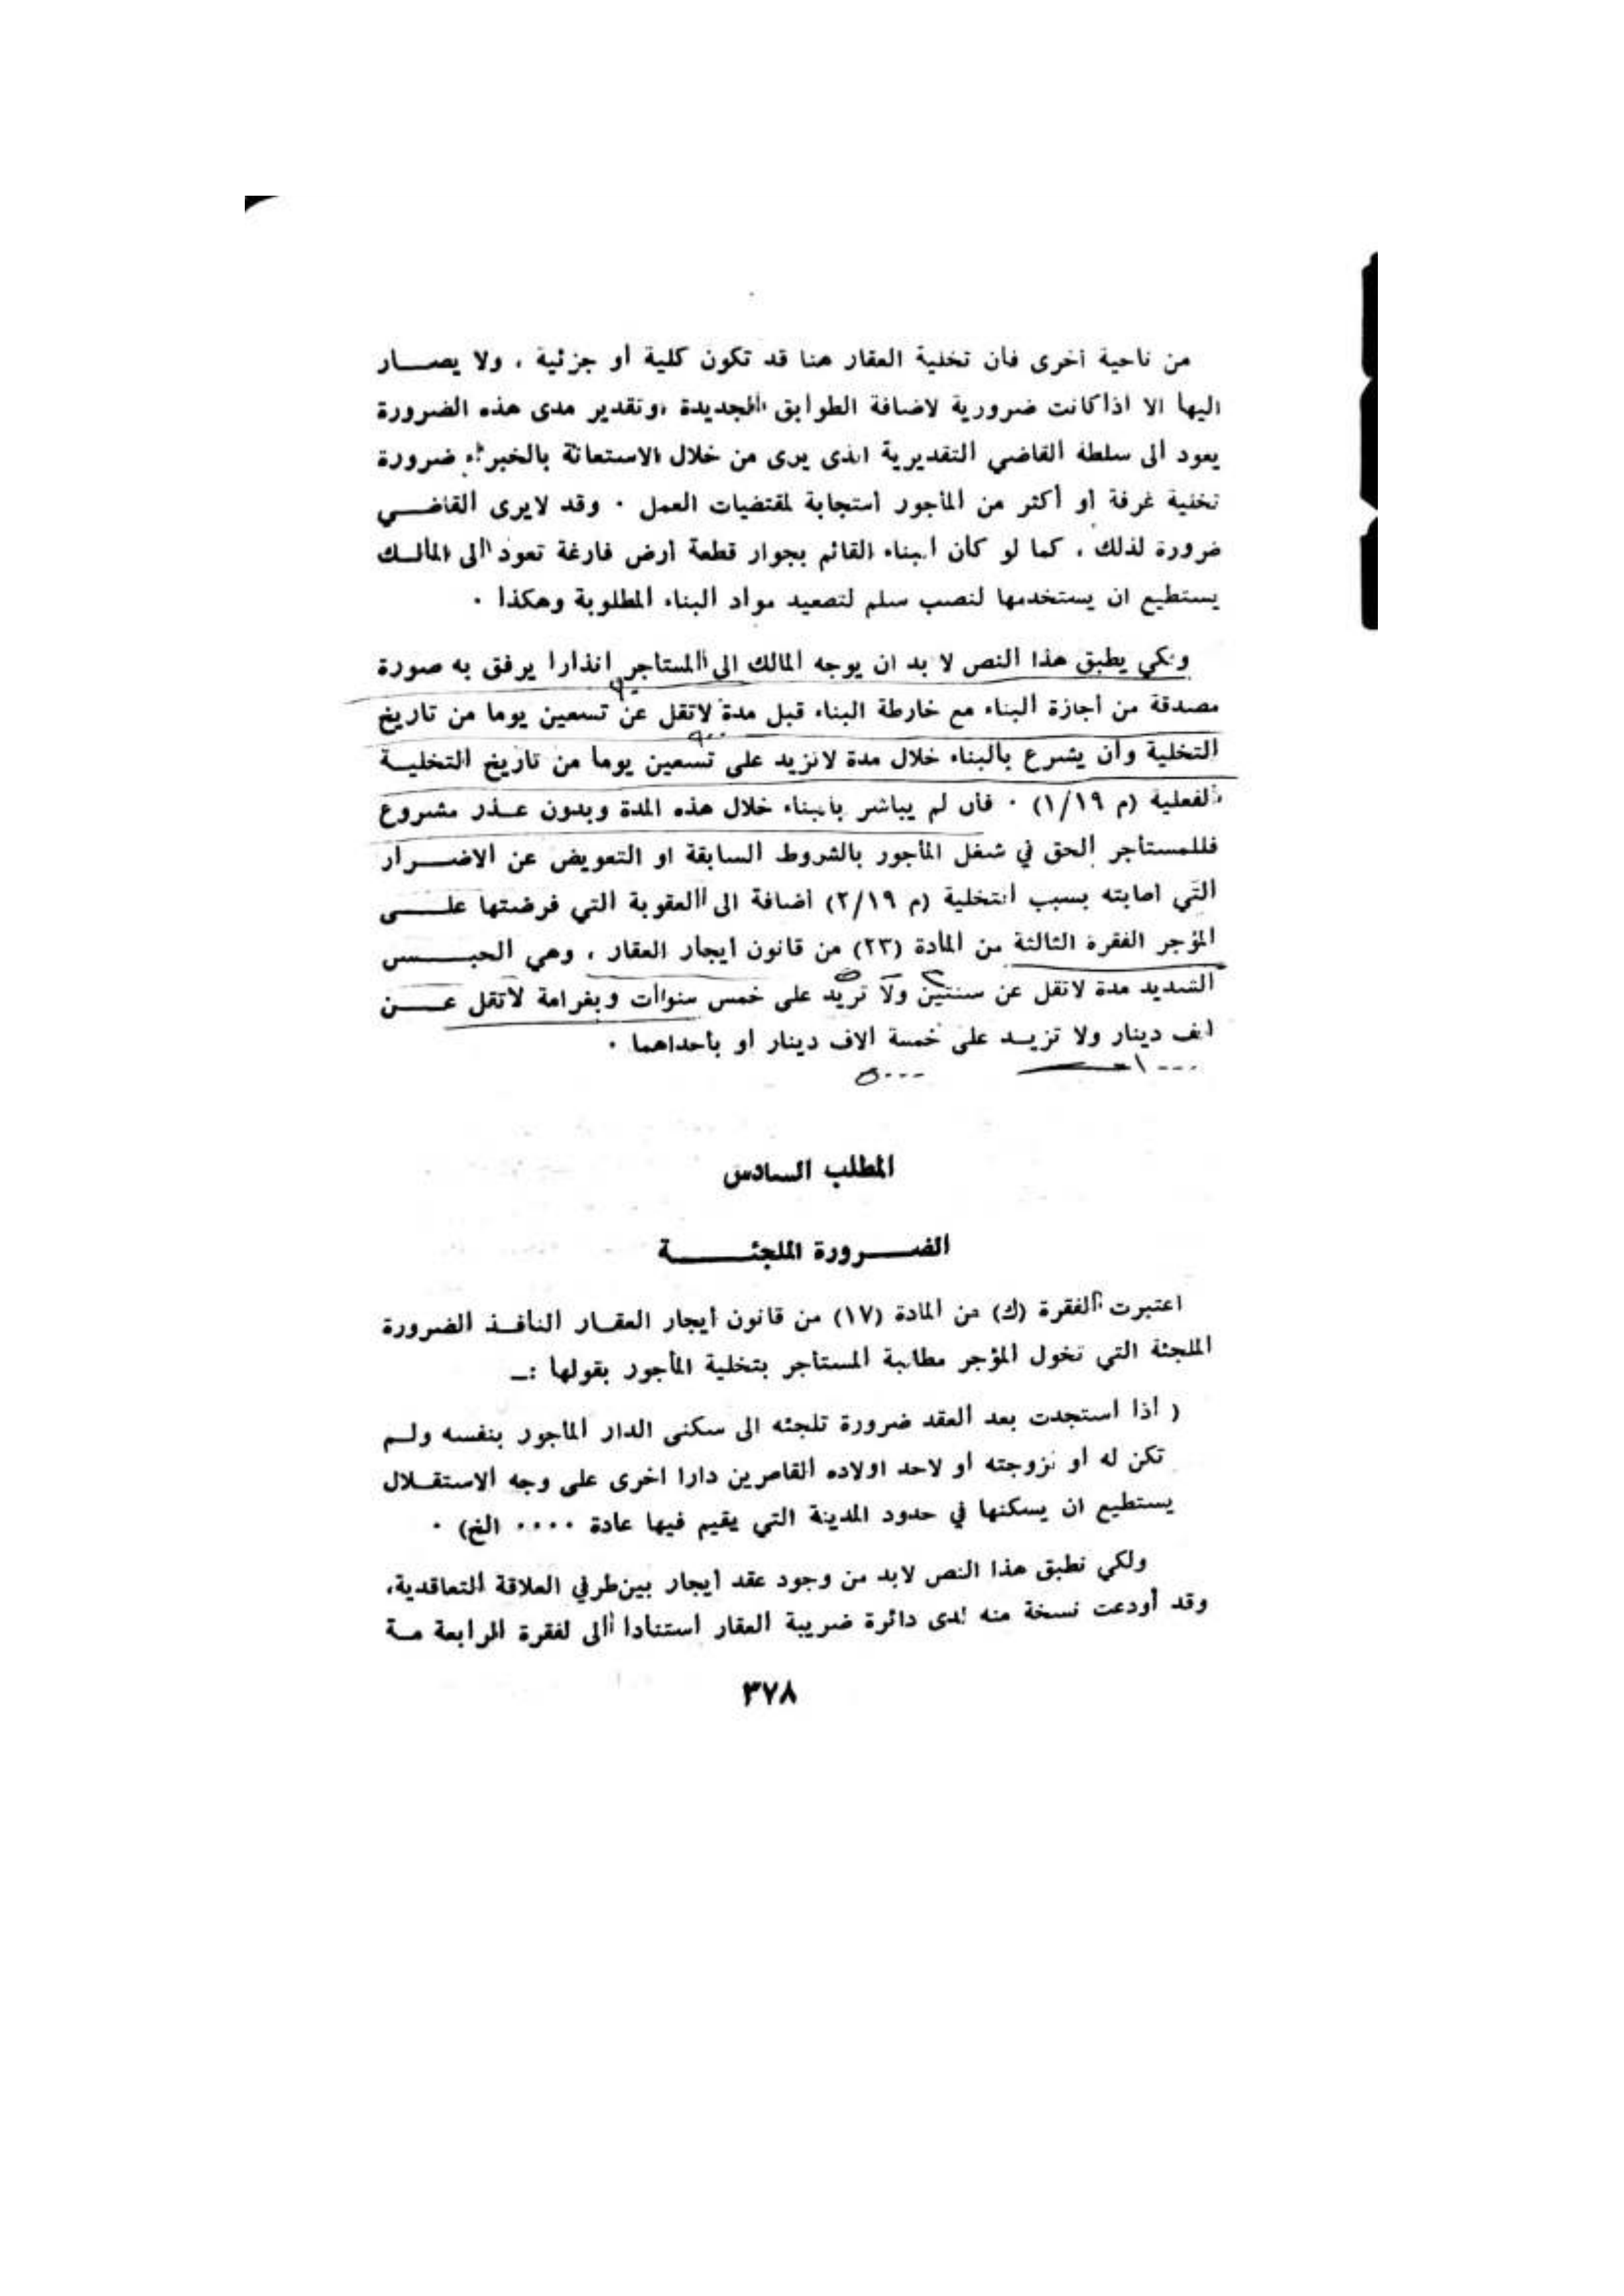 من ناحية أخرى فأن تخلية العقار هنا قد تكون كلية أو جزئية ، ولا يصـــار
اليها الا اذا كانت ضرورية لاضافة الطوابق الجديدة ، وتقدير مدى هذه الضرورة
يعود الى سلطة القاضي التقديرية الذى يرى من خلال الاستعانة بالخبراء ضرورة
تخلية غرفة أو أكثر من المأجور أستجابة لمقتضيات العمل ٠ وقد لايرى القاضـــي
ضرورة لذلك ، كما لو كان البناء القائم بجوار قطعة أرض فارغة تعود الى المالــك
يستطيع ان يستخدمها لنصب سلم لتصعيد مواد البناء المطلوبة وهكذا ٠
ولكي يطبق هذا النص لا بد ان يوجه المالك الى المستاجر انذارا يرفق به صورة
مصدقة من أجازة البناء مع خارطة البناء قبل مدة لاتقل عن تسعين يوما من تاريخ
التخلية وأن يشرع بالبناء خلال مدة لاتزيد على تسعين يوما من تاريخ التخليــة
الفعلية (م ١/١٩) ٠ فأن لم يباشر بالبناء خلال هذه المدة وبدون عــذر مشروع
فللمستأجر الحق في شغل المأجور بالشروط السابقة او التعويض عن الاضـــرار
التي اصابته بسبب التخلية (م ٢/١٩) أضافة الى العقوبة التي فرضتها علـــى
المؤجر الفقرة الثالثة من المادة (٢٣) من قانون أيجار العقار ، وهي الحبـــس
الشديد مدة لاتقل عن سنتين ولا تزيد على خمس سنوات وبغرامة لاتقل عـــن
الف دينار ولا تزيــد على خمسة الاف دينار او بأحداهما ٠
١٠٠٠ ٥٠٠٠
المطلب السادس
الضـــرورة الملجئـــة
اعتبرت الفقرة (ك) من المادة (١٧) من قانون أيجار العقــار النافــذ الضرورة
الملجئة التي تخول المؤجر مطالبة المستأجر بتخلية المأجور بقولها :ــ
( أذا أستجدت بعد العقد ضرورة تلجئه الى سكنى الدار المأجور بنفسه ولــم
تكن له او لزوجته او لاحد اولاده القاصرين دارا اخرى على وجه الاستقــلال
يستطيع ان يسكنها في حدود المدينة التي يقيم فيها عادة ٠٠٠٠ الخ) ٠
ولكي نطبق هذا النص لابد من وجود عقد أيجار بين طرفي العلاقة التعاقدية،
وقد أودعت نسخة منه لدى دائرة ضريبة العقار استنادا الى لفقرة الرابعة مــة
٣٧٨